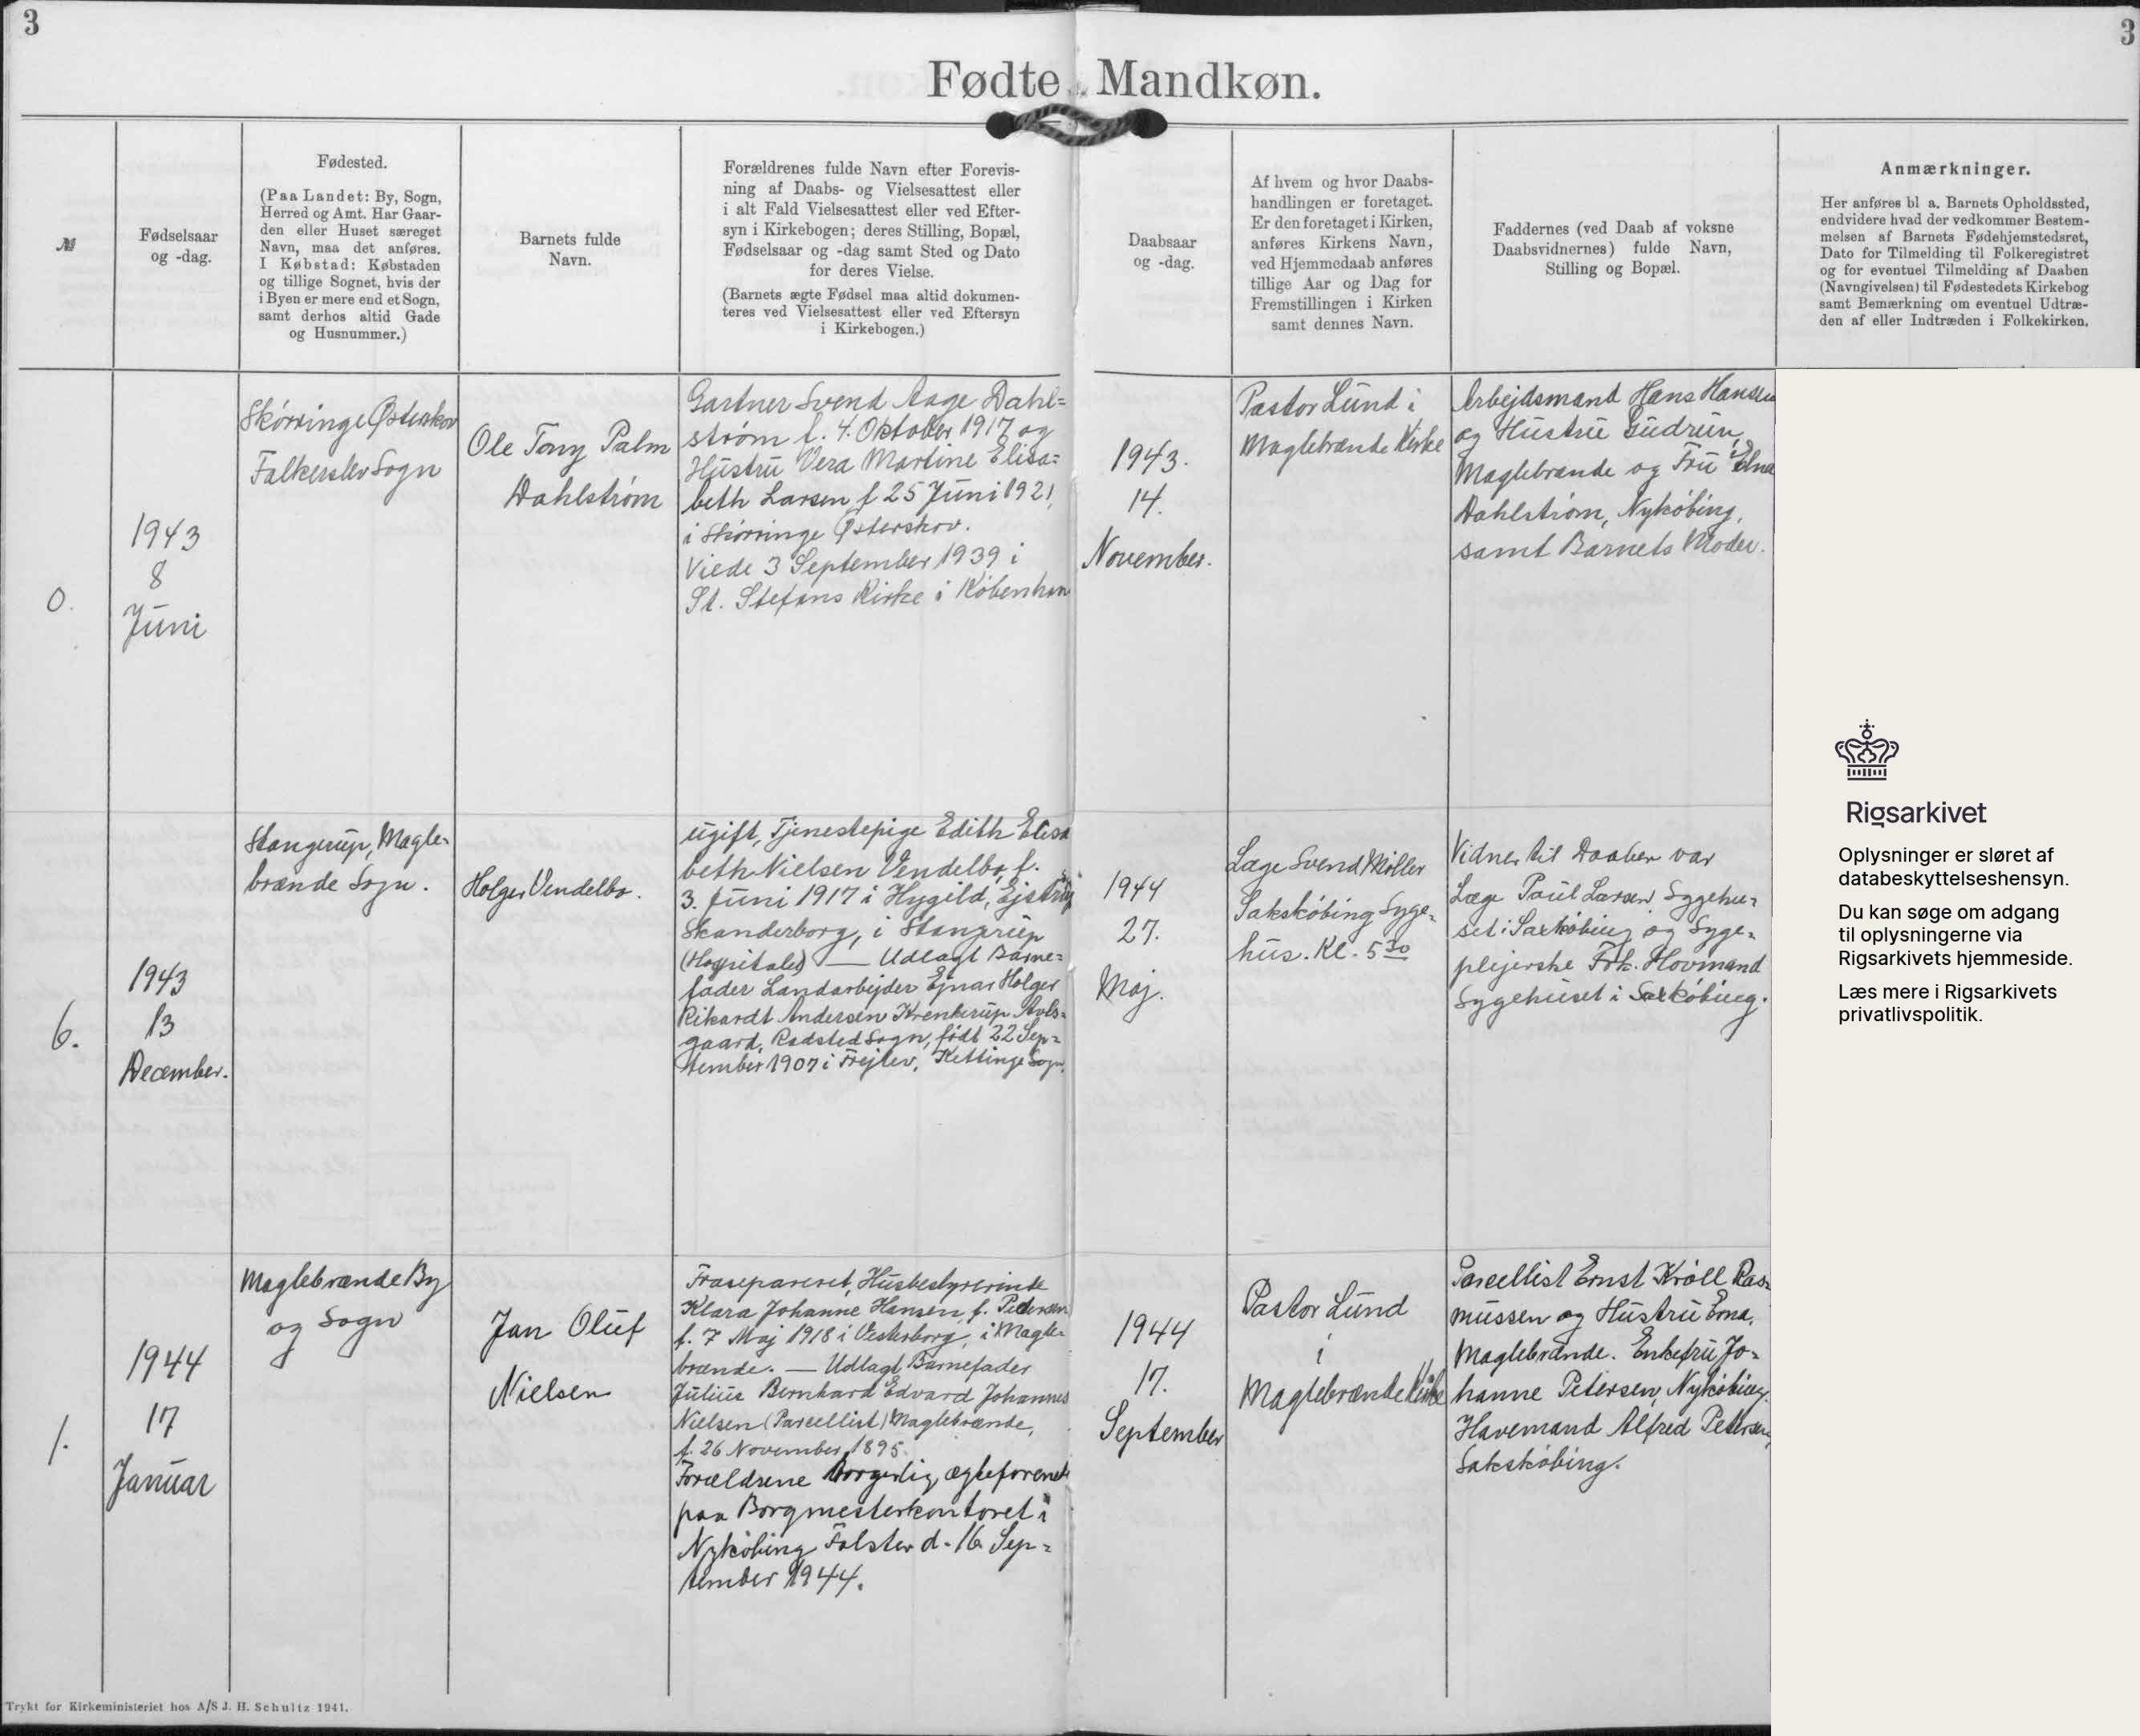 3
3
Fødte Mandkøn.
№
Fødselsaar
og -dag.
Fødested.
(Paa Landet: By, Sogn,
Herred og Amt. Har Gaar-
den eller Huset særeget
Navn, maa det anføres.
I Købstad: Købstaden
og tillige Sognet, hvis der
i Byen er mere end et Sogn,
samt derhos altid Gade
og Husnummer.)
Barnets fulde
Navn.
Forældrenes fulde Navn efter Forevis-
ning af Daabs- og Vielsesattest eller
i alt Fald Vielsesattest eller ved Efter-
syn i Kirkebogen; deres Stilling, Bopæl,
Fødselsaar og -dag samt Sted og Dato
for deres Vielse.
(Barnets ægte Fødsel maa altid dokumen-
teres ved Vielsesattest eller ved Eftersyn
i Kirkebogen.)
Daabsaar
og -dag.
Af hvem og hvor Daabs-
handlingen er foretaget.
Er den foretaget i Kirken,
anføres Kirkens Navn,
ved Hjemmedaab anføres
tillige Aar og Dag for
Fremstillingen i Kirken
samt dennes Navn.
Faddernes (ved Daab af voksne
Daabsvidnernes) fulde Navn,
Stilling og Bopæl.
Anmærkninger.
Her anføres bl a. Barnets Opholdssted,
endvidere hvad der vedkommer Bestem-
melsen af Barnets Fødehjemstedsret,
Dato for Tilmelding til Folkeregistret
og for eventuel Tilmelding af Daaben
(Navngivelsen) til Fødestedets Kirkebog
samt Bemærkning om eventuel Udtræ-
den af eller Indtræden i Folkekirken.
0.
1943
8
Juni
Skørringe Østerskov
Falkerslev Sogn
Ole Tony Palm
Dahlstrøm
Gartner Svend Aage Dahl=
strøm f. 4. Oktober 1917 og
Hustru Vera Martine Elisa=
beth Larsen f 25 Juni 1921,
i Skørringe Østerskov.
Viede 3 September 1939 i
St. Stefans Kirke i Københan
1943.
14.
November.
Pastor Lund i
Maglebrænde Kirke
Arbejdsmand Hans Hansen
og Hustru Gudrun,
Maglebrænde og Fru Elna
Dahlstrøm, Nykøbing,
samt Barnets Moder.
6.
1943
13
December.
Stangerup, Magle=
brænde Sogn.
Holger Vendelbo.
ugift, Tjenestepige Edith Elisa
beth Nielsen Vendelbo, f.
3. Juni 1917 i Hygild, Ejstrup
Skanderborg, i Stangrup
(Hospitalet) — Udlagt Barne=
fader Landarbejder Ejnar Holger
Rikardt Andersen Krenkerup Avls=
gaard, Radsted Sogn, født 22 Sep=
tember 1907 i Frejlev, Kettinge Sogn.
1944
27.
Maj.
Læge Svend Møller
Sakskøbing Syge=
hus. Kl. 5 30
Vidner til Daaben var
Læge Poul Larsen, Sygehu=
set i Saxkøbing og Syge=
plejerske Frk. Hovmand
Sygehuset i Saxkøbing.
1.
1944
17
Januar
Maglebrænde By
og Sogn
Jan Oluf
Nielsen
Frasepareret, Husbestyrerinde
Klara Johanne Hansen, f. Petersen
f. 7 Maj 1918 i Vesterborg, i Magle=
brænde. — Udlagt Barnefader
Julius Bernhard Edvard Johannes
Nielsen (Parcellist) Maglebrænde,
f. 26 November 1895.
Forældrene borgerlig ægteforenet
paa Borgmesterkontoret i
Nykøbing Falster d. 16 Sep=
tember 1944.
1944
17.
September
Pastor Lund
i
Maglebrænde Kirke
Parcellist Ernst Krøll Ras=
mussen og Hustru Erna,
Maglebrænde. Enkefru Jo=
hanne Petersen, Nykøbing.
Havemand Alfred Petersen,
Sakskøbing.
Rigsarkivet
Oplysninger er sløret af
databeskyttelseshensyn.
Du kan søge om adgang
til oplysningerne via
Rigsarkivets hjemmeside.
Læs mere i Rigsarkivets
privatlivspolitik.
Trykt for Kirkeministeriet hos A/S J. H. Schultz 1941.